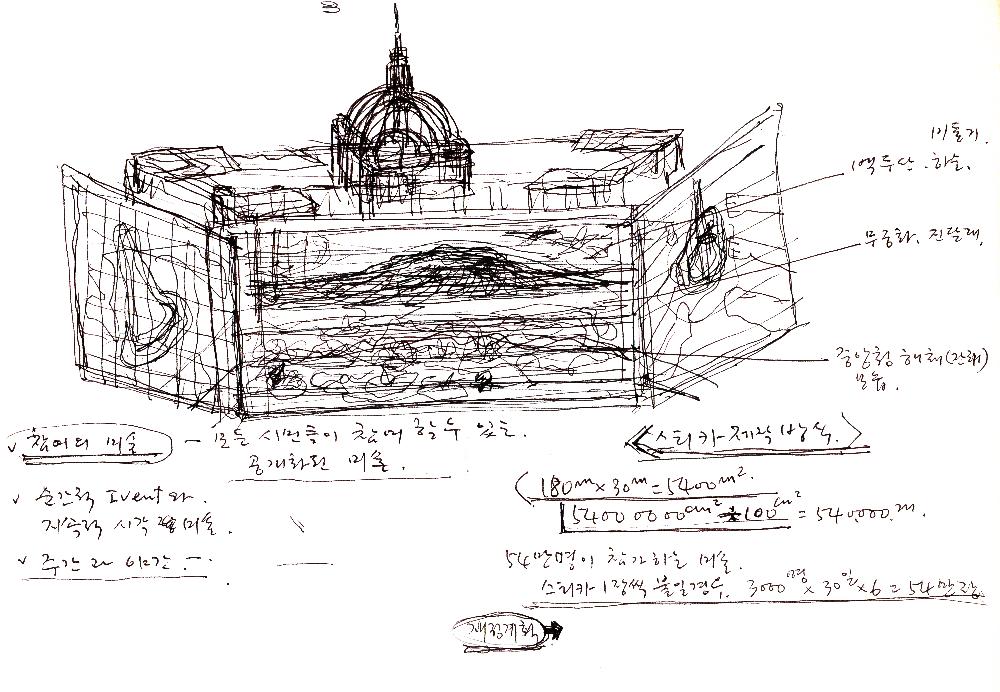 백두산. 하늘.
무궁화. 진달래.
중앙청 해체(잔해)
모습.
✓ 참여의 미술 - 모든 시민들이 참여 할 수 있는.
공개화된 미술.
✓ 순간적 Event와.
지속적 시각 미술.
✓ 주간과 야간 -.
<스티카 제작 방식.>
180m x 30m = 5400m².
54000000cm² ÷ 100cm² = 540,000m.
54만명이 참가하는 미술.
스티카 1장씩 붙일경우. 3000명 x 30일 x 6 = 54만장.
재정계획